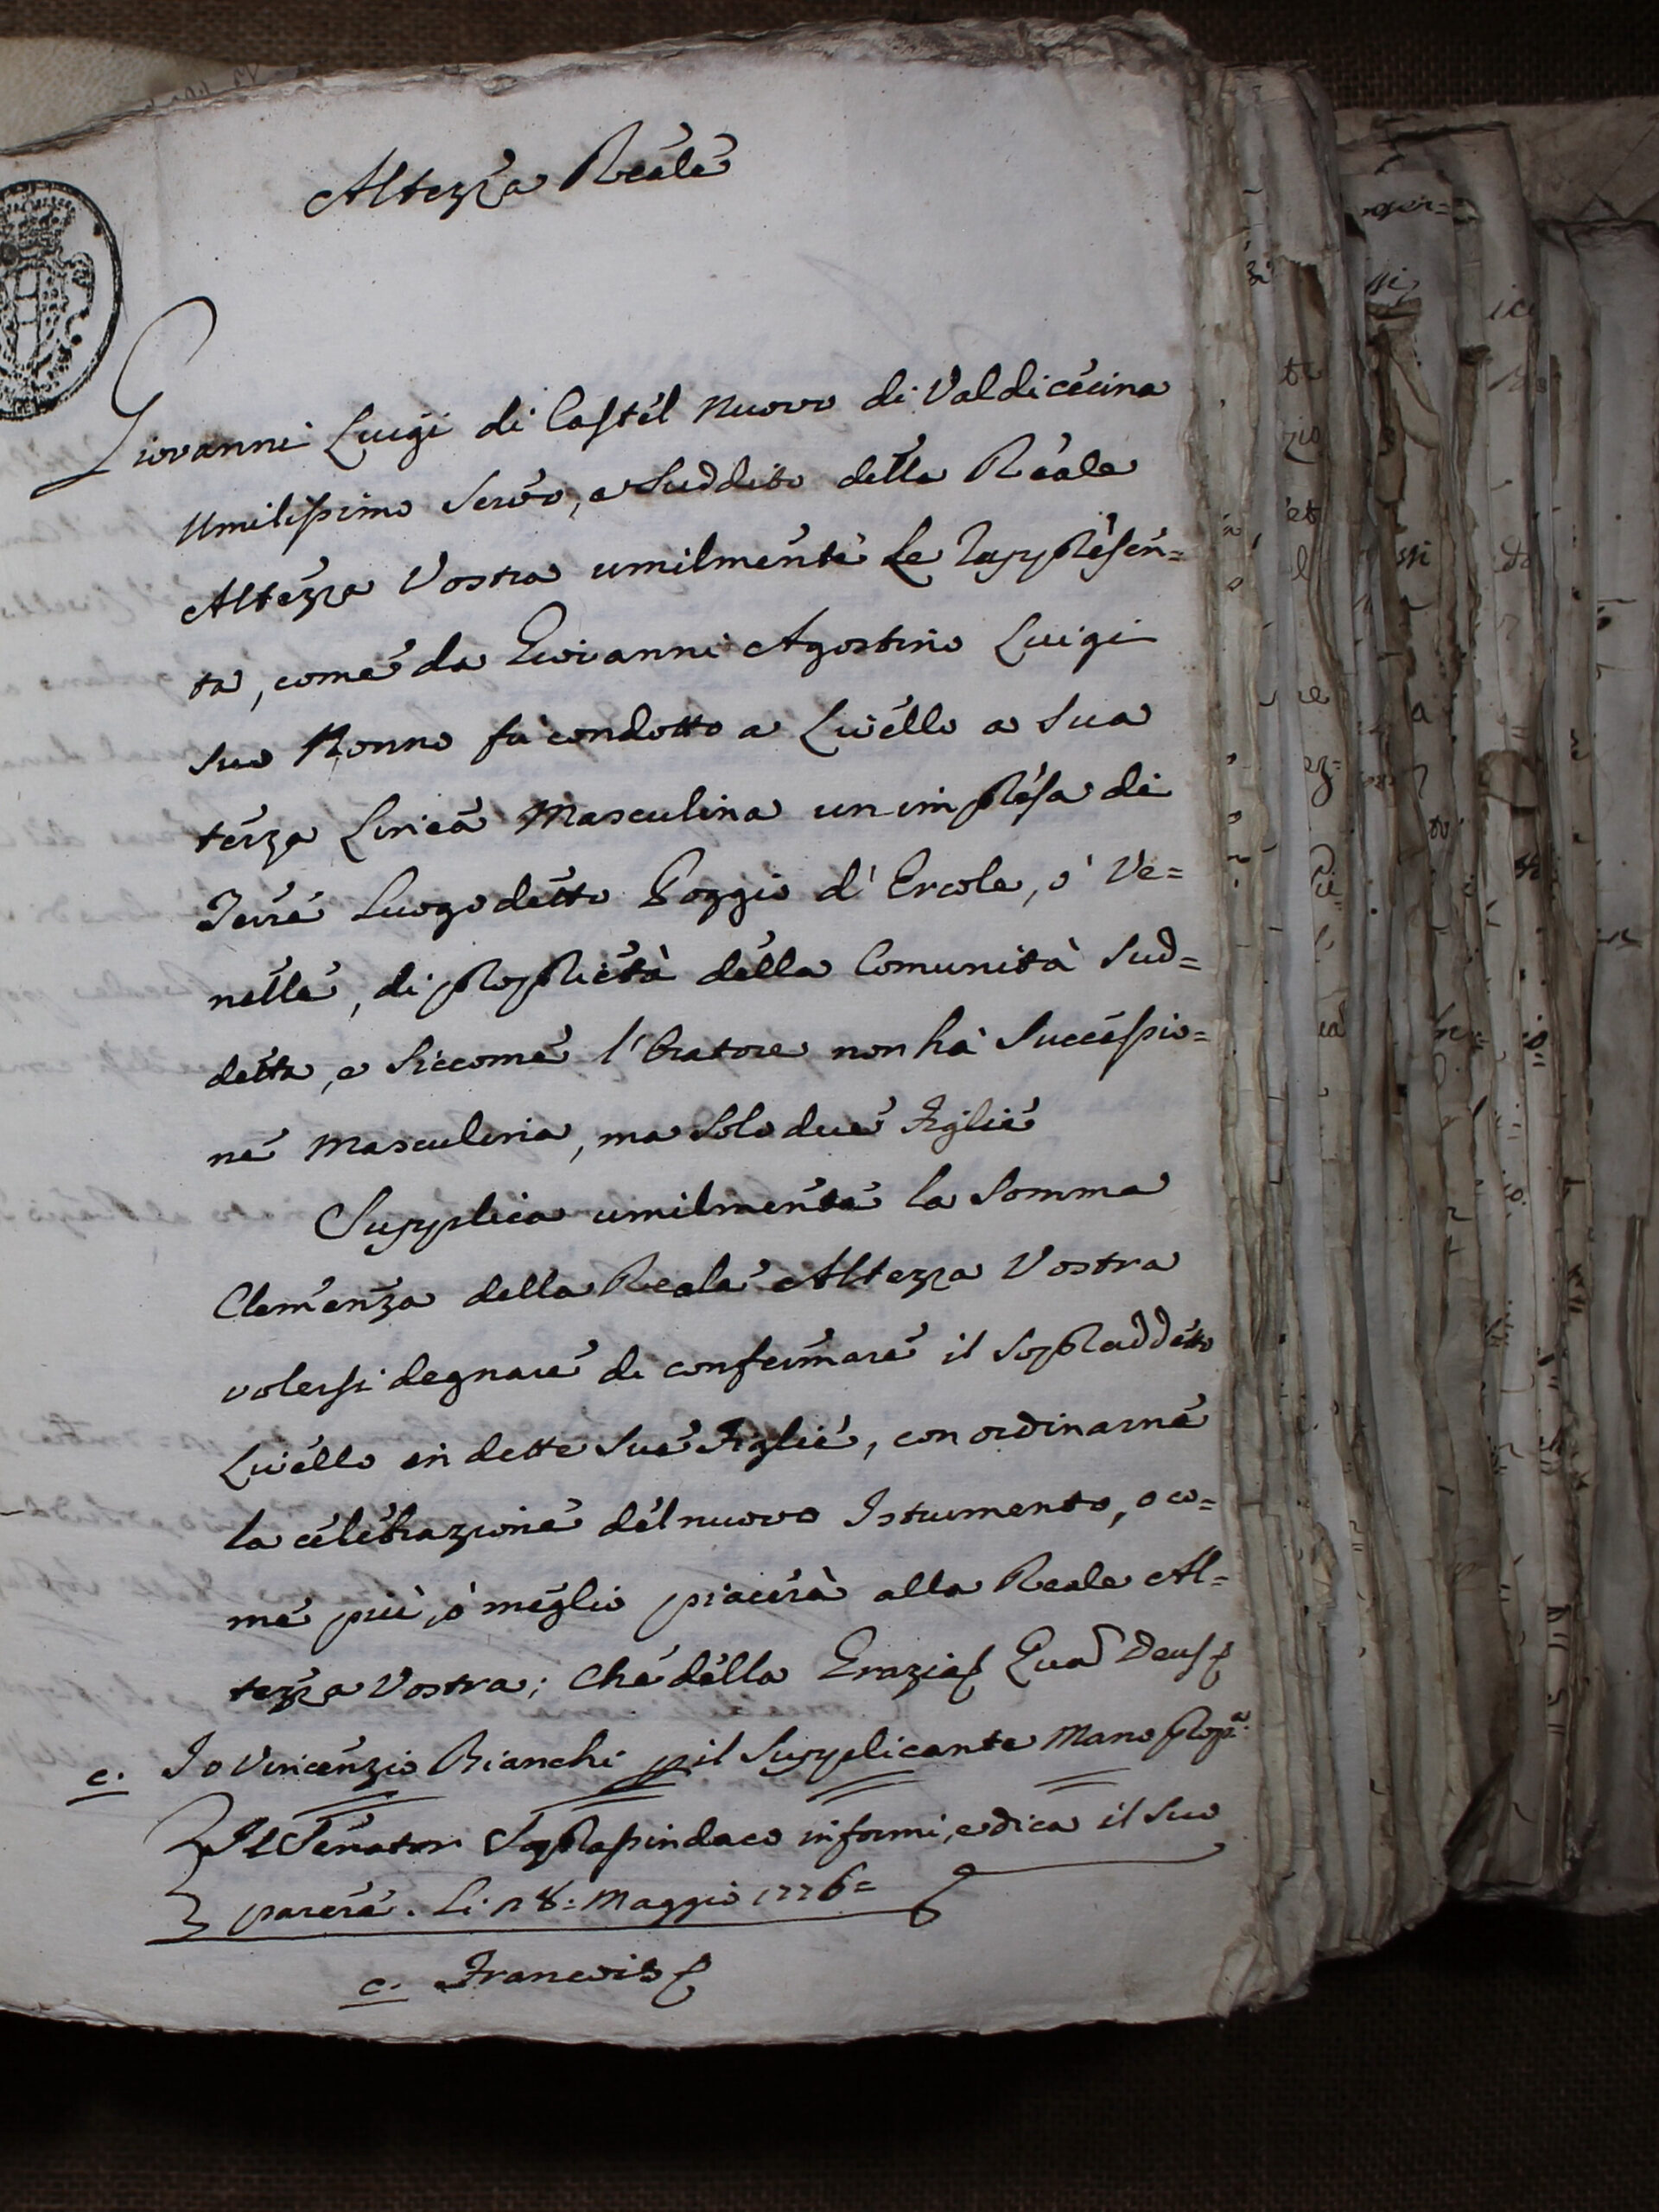 Altezza Reale
Giovanni Luigi di Castel nuovo di Valdicecina
Umilissimo Servo, e Suddito della Reale
Altezza Vostra umilmente Le rappresen=
ta, come da Giovanni Agostino Luigi
suo Nonno fù condotto a Livello a sua
terza Linea Masculina un impresa di
Terre Luogo detto Poggio d' Ercole, ò Ve=
nelle, di proprietà della Comunità Sud=
detta, e siccome l' Oratore non hà Successio=
ne Masculina, ma solo due Figlie
Supplica umilmente la Somma
Clemenza della Reale Altezza Vostra
volersi degnare di confermare il Sopraddetto
Livello in dette sue Figlie, con ordinarne
la celebrazione del nuovo Istrumento, o co=
me più, ò meglio piacerà alla Reale Al=
tezza Vostra; che della Grazia Quam Deus
c. Io Vincenzio Bianchi p il Supplicante Mano prop.a
Il Senator Soprassindaco informi, e dica il suo
parere. Li 18: Maggio 1776=
c.